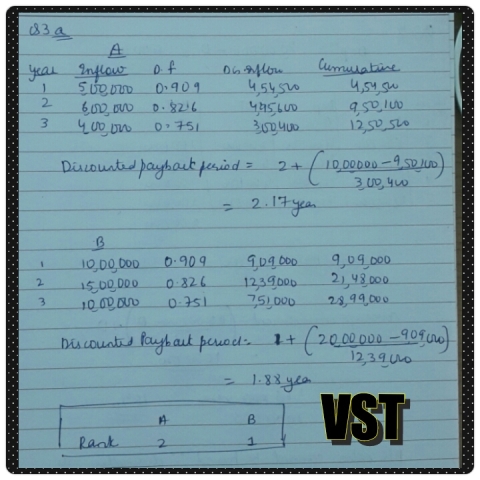 Q3 a
A
Year Inflow D.f Dis.inflow Cumulative
1 5,00,000 0.909 4,54,500 4,54,500
2 6,00,000 0.826 4,95,600 9,50,100
3 4,00,000 0.751 3,00,400 12,50,500
Discounted payback period = 2 + (10,00,000 - 9,50,100 / 3,00,400)
= 2.17 year
B
1 10,00,000 0.909 9,09,000 9,09,000
2 15,00,000 0.826 1239,000 21,48,000
3 10,00,000 0.751 7,51,000 28,99,000
Discounted Payback period = 1 + (20,00,000 - 909,000 / 12,39,000)
= 1.88 year
A B
Rank 2 1
VST